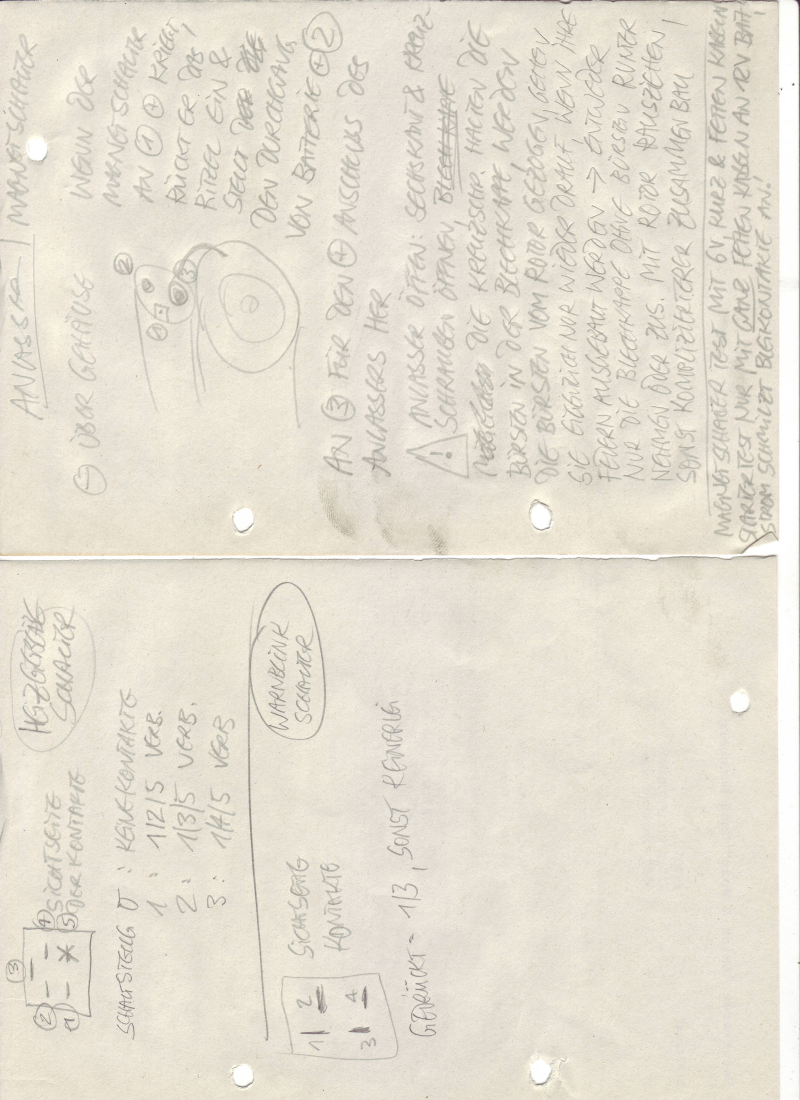 HEIZGEBLÄSE
SCHALTER
3
2 4
1 5
SICHTSEITE
DER KONTAKTE
SCHALTSTELLG 0 : KEINE KONTAKTE
1 : 1/2/5 VERB.
2 : 1/3/5 VERB.
3 : 1/4/5 VERB
WARNBLINK
SCHALTER
1 2
3 4
SICHTSEITE
KONTAKTE
GEDRÜCKT = 1/3, SONST KEINERLEI
ANLASSER / MAGNETSCHALTER
⊖ ÜBER GEHÄUSE
2
1
3
WENN DER
MAGNETSCHALTER
AN ① ⊕ KRIEGT,
RÜCKT ER DAS
RITZEL EIN &
STELLT
DEN DURCHGANG
VON BATTERIE ⊕ ②
AN ③ FÜR DEN ⊕ ANSCHLUSS DES
ANLASSERS HER
! ANLASSER ÖFFEN: SECHSKANT & KREUZ-
SCHRAUBEN ÖFFNEN, BLECHKAPPE
DIE KREUZSCHR. HALTEN DIE
BÜRSTEN IN DER BLECHKAPPE. WERDEN
DIE BÜRSTEN VOM ROTOR GEZOGEN, GEHEN
SIE NUR WIEDER DRAUF WENN IHRE
FEDERN AUSGEBAUT WERDEN → ENTWEDER
NUR DIE BLECHKAPPE OHNE BÜRSTEN RUNTER
NEHMEN ODER ZUS. MIT ROTOR RAUSZIEHEN,
SONST KOMPLIZIERTERER ZUSAMMENBAU
MAGNETSCHALTER TEST MIT 6V KURZ & FETTEN KABELN
STARTERTEST NUR MIT GANZ FETTEN KABELN AN 12V BATT,
STROM SCHMILZT BLEIKONTAKTE AN!